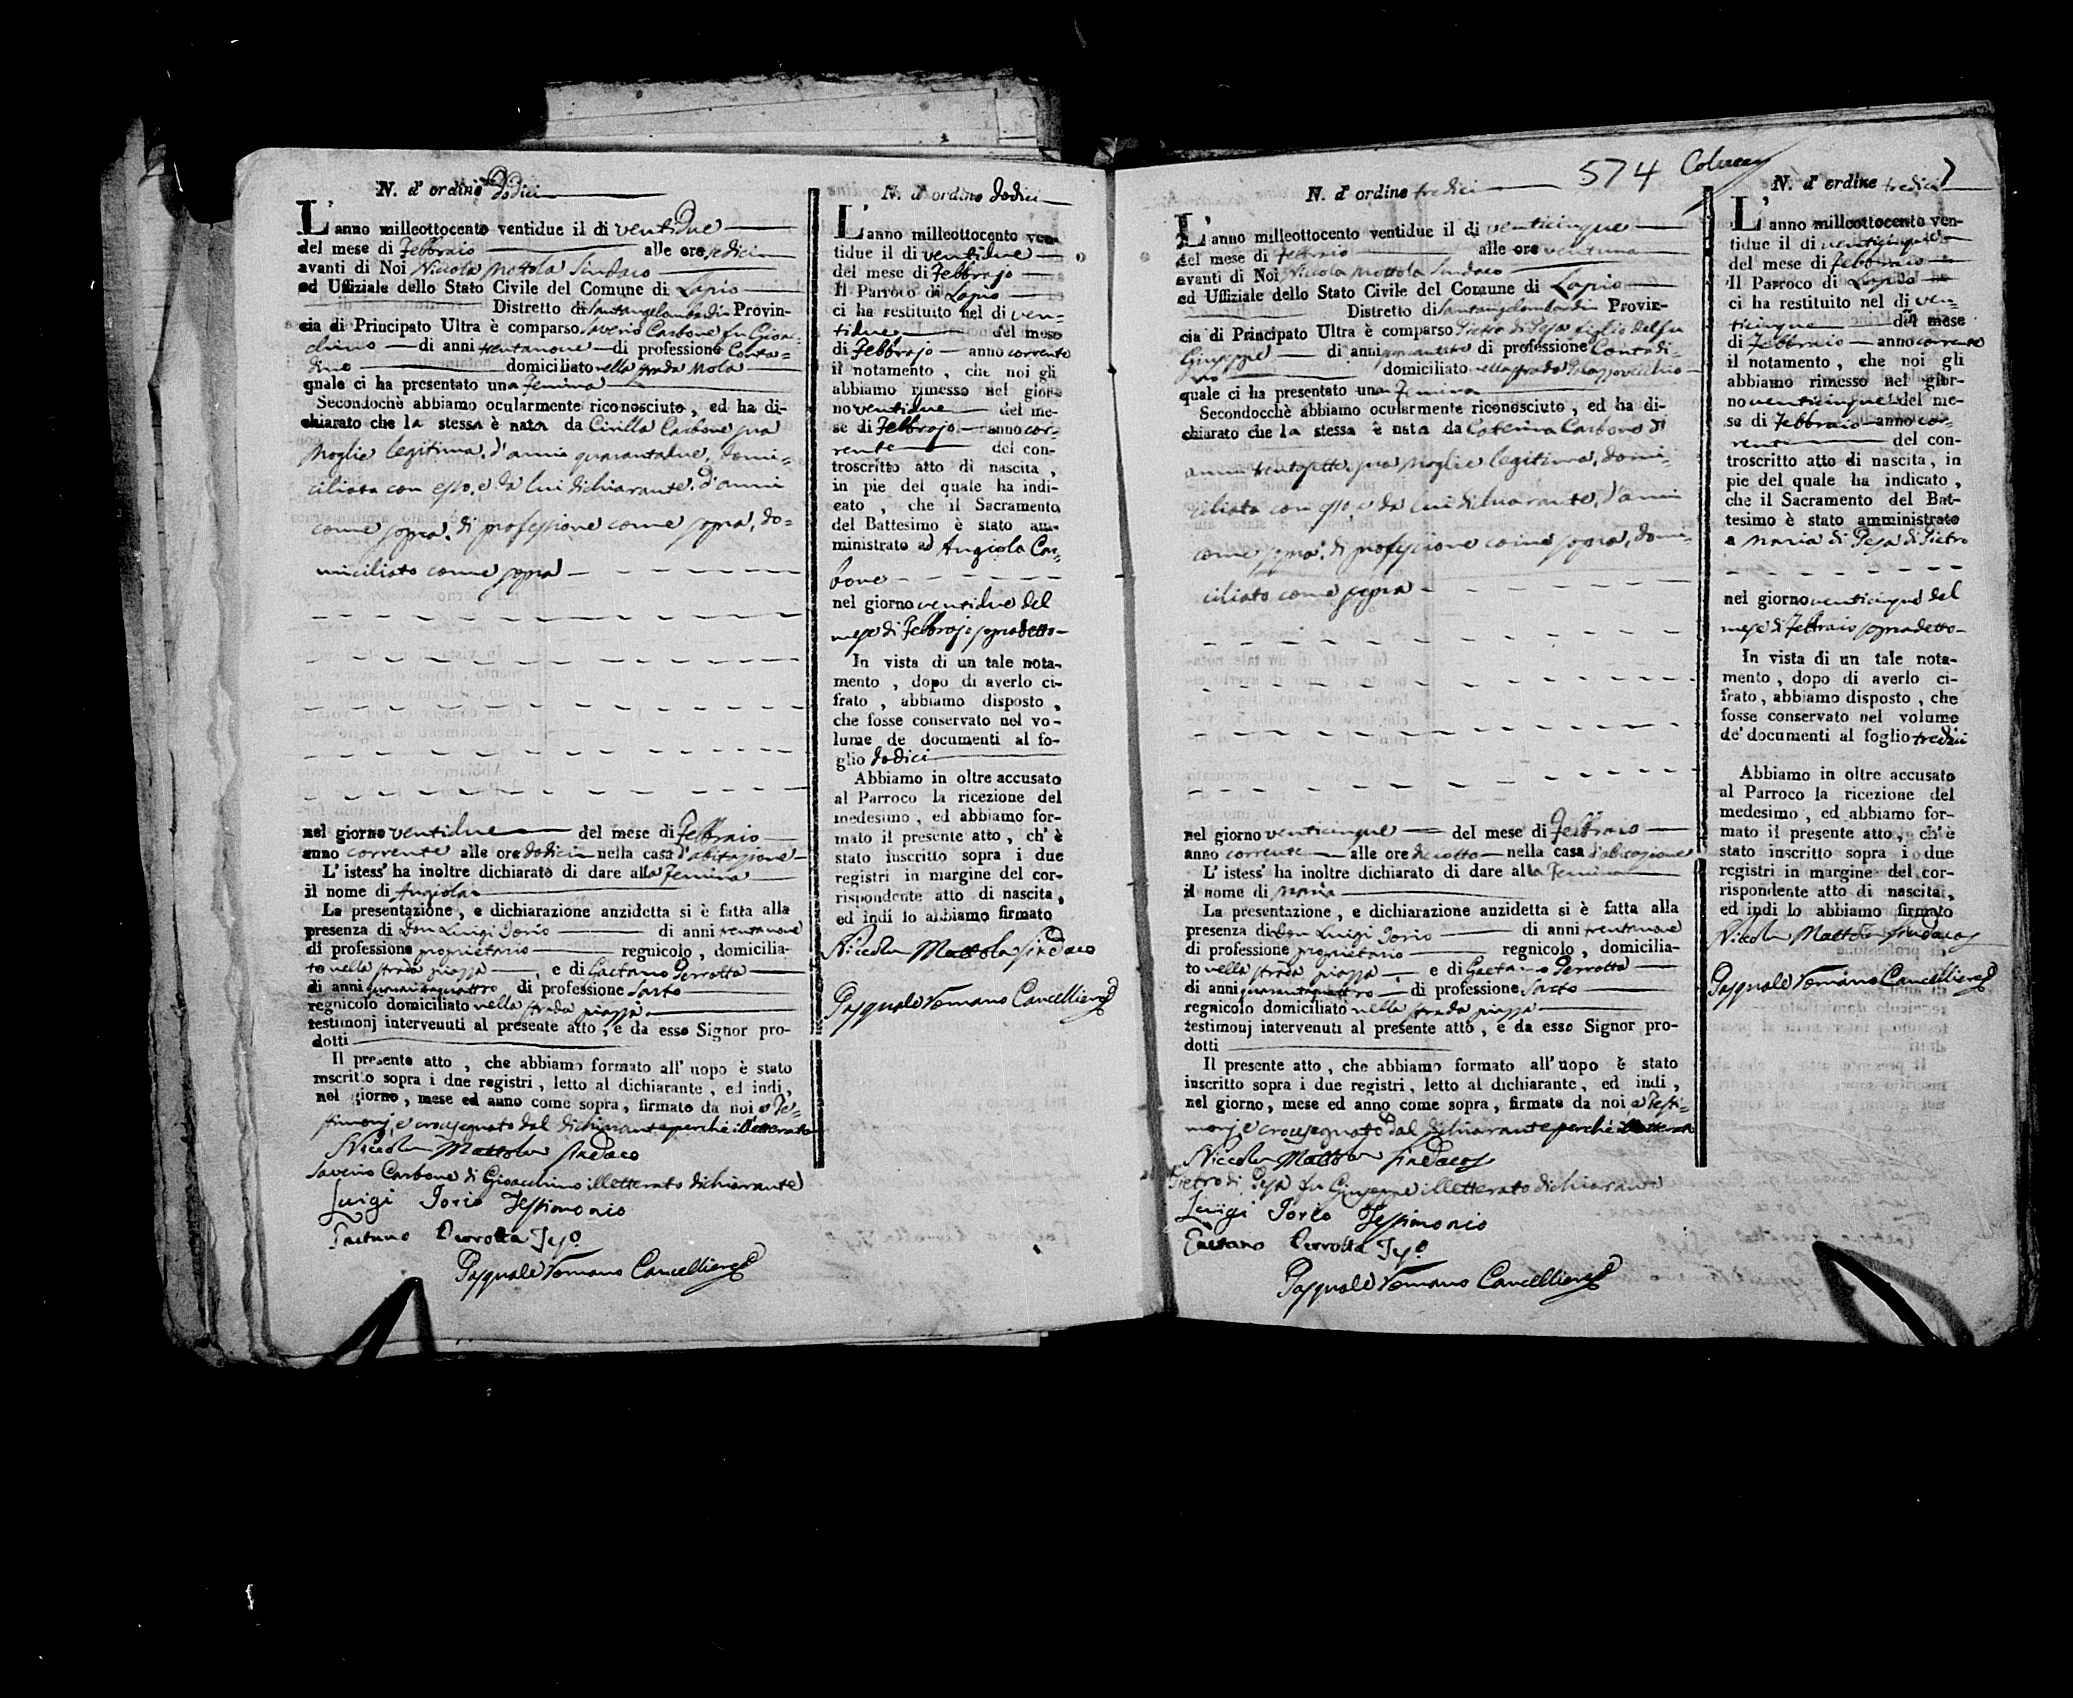 N. d' ordine Dodici
L' anno milleottocento ventidue il di ventidue
del mese di Febbraio alle ore sedici
avanti di Noi Niccola Mottola Sindaco
ed Uffiziale dello Stato Civile del Comune di Lapio
Distretto di Santangelombardi Provin-
cia di Principato Ultra è comparso Saverio Carbone fu Gioac-
chino di anni trentanove di professione Conta-
dino domiciliato nella strada Mola
quale ci ha presentato una Femina
Secondochè abbiamo ocularmente riconosciuto, ed ha di-
chiarato che la stessa è nata da Cirilla Carbone sua
Moglie legitima, d'anni quarantadue, domi-
ciliata con esso, e da lui dichiarante, d'anni
come sopra, di professione come sopra, do-
miciliato come sopra
nel giorno ventidue del mese di Febbraio
anno corrente alle ore dodici nella casa d'abitazione
L' istess' ha inoltre dichiarato di dare alla Femina
il nome di Angiola
La presentazione, e dichiarazione anzidetta si è fatta alla
presenza di Don Luigi Iorio di anni trentanove
di professione proprietario regnicolo, domicilia-
to nella strada piazza, e di Gaetano Perrotta
di anni quarantaquattro di professione Sarto
regnicolo domiciliato nella strada piazza
testimonj intervenuti al presente atto, e da esso Signor pro-
dotti
Il presente atto, che abbiamo formato all' uopo è stato
inscritto sopra i due registri, letto al dichiarante, ed indi,
nel giorno, mese ed anno come sopra, firmato da noi e Te-
stimonj, e crocesegnato dal dichiarante perchè illetterato
Niccola Mottola Sindaco
Saverio Carbone di Gioacchino illetterato dichiarante
Luigi Iorio Testimonio
Gaetano Perrotta Tes.o
Pasquale Romano Cancelliere
N. d' ordine dodici
L' anno milleottocento ven-
tidue il di ventidue
del mese di Febbrajo
Il Parroco di Lapio
ci ha restituito nel di ven-
tidue del mese
di Febbrajo anno corrente
il notamento, che noi gli
abbiamo rimesso nel gior-
no ventidue del me-
se di Febbrajo anno cor-
rente del con-
troscritto atto di nascita,
in pie del quale ha indi-
cato, che il Sacramento
del Battesimo è stato am-
ministrato ad Angiola Car-
bone
nel giorno ventidue del
mese di Febbrajo sopradetto
In vista di un tale nota-
mento, dopo di averlo ci-
frato, abbiamo disposto,
che fosse conservato nel vo-
lume de documenti al fo-
glio dodici
Abbiamo in oltre accusato
al Parroco la ricezione del
medesimo, ed abbiamo for-
mato il presente atto, ch' è
stato inscritto sopra i due
registri in margine del cor-
rispondente atto di nascita,
ed indi lo abbiamo firmato
Niccola Mottola Sindaco
Pasquale Romano Cancelliere
574
N. d' ordine tredici
L' anno milleottocento ventidue il di venticinque
del mese di Febbraio alle ore ventuna
avanti di Noi Niccola Mottola Sindaco
ed Uffiziale dello Stato Civile del Comune di Lapio
Distretto di Santangelombardi Provin-
cia di Principato Ultra è comparso Pietro di Pesa figlio del fu
Giuseppe di anni di professione Contadi-
no domiciliato nella strada Palazzovecchio
quale ci ha presentato una Femina
Secondocchè abbiamo ocularmente riconosciuto, ed ha di-
chiarato che la stessa è nata da Caterina Carbone di
anni trentasette, sua Moglie legitima, domi-
ciliata con esso, e da lui dichiarante, d'anni
come sopra, di professione come sopra, domi-
ciliato come sopra
nel giorno venticinque del mese di Febbraio
anno corrente alle ore diciotto nella casa d'abitazione
L' istess' ha inoltre dichiarato di dare alla Femina
il nome di Maria
La presentazione, e dichiarazione anzidetta si è fatta alla
presenza di Don Luigi Iorio di anni trentanove
di professione proprietario regnicolo, domicilia-
to nella strada piazza e di Gaetano Perrotta
di anni quarantaquattro di professione Sarto
regnicolo domiciliato nella strada piazza
testimonj intervenuti al presente atto, e da esso Signor pro-
dotti
Il presente atto, che abbiamo formato all' uopo è stato
inscritto sopra i due registri, letto al dichiarante, ed indi,
nel giorno, mese ed anno come sopra, firmato da noi e Testi-
monj e crocesegnato dal dichiarante perchè illetterato
Niccola Mottola Sindaco
Pietro di Pesa fu Giuseppe illetterato dichiarante
Luigi Iorio Testimonio
Gaetano Perrotta Tes.o
Pasquale Romano Cancelliere
N. d' ordine tredici
L' anno milleottocento ven-
tidue il di venticinque
del mese di Febbraio
Il Parroco di Lapio
ci ha restituito nel di ven-
ticinque del mese
di Febbraio anno corrente
il notamento, che noi gli
abbiamo rimesso nel gior-
no venticinque del me-
se di Febbraio anno cor-
rente del con-
troscritto atto di nascita, in
pie del quale ha indicato,
che il Sacramento del Bat-
tesimo è stato amministrato
a Maria di Pesa di Pietro
nel giorno venticinque del
mese di Febbraio sopradetto
In vista di un tale nota-
mento, dopo di averlo ci-
frato, abbiamo disposto, che
fosse conservato nel volume
de' documenti al foglio tredici
Abbiamo in oltre accusato
al Parroco la ricezione del
medesimo, ed abbiamo for-
mato il presente atto, ch' è
stato inscritto sopra i due
registri in margine del cor-
rispondente atto di nascita,
ed indi lo abbiamo firmato
Niccola Mottola Sindaco
Pasquale Romano Cancelliere